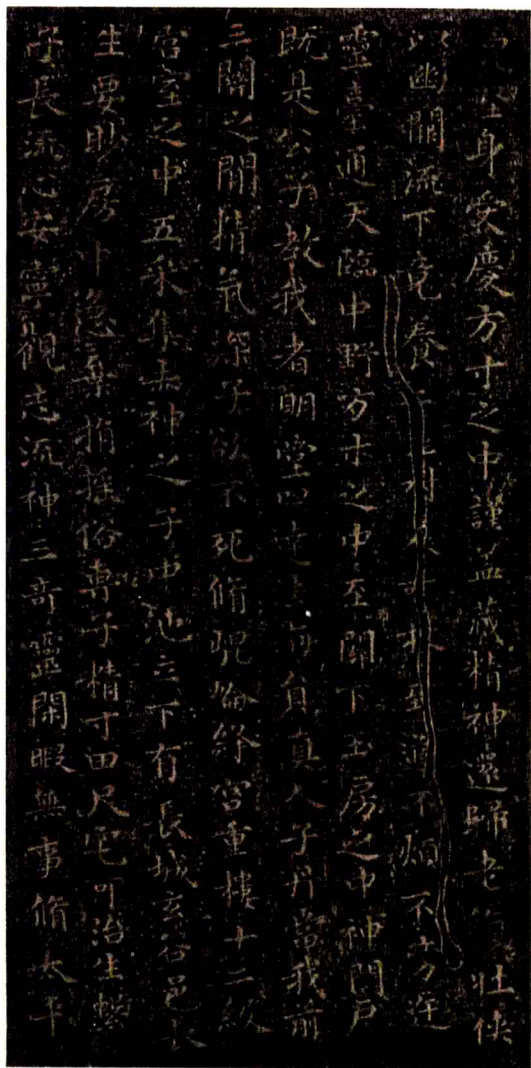 堅身受慶方寸之中謹蓋藏精神還歸老復壯俠
以幽闕流下竟養子至道不煩不旁迕
靈臺通天臨中野方寸之中至關下玉房之中神門戶
既是公子教我者明堂四達法海員真人子丹當我前
三關之間精氣深子欲不死脩崐崘絳宮重樓十二級
宮室之中五采集赤神之子中池立下有長城玄谷邑長
生要眇房中急棄捐搖俗專子精寸田尺宅可治生繫
子長流心安寧觀志流神三奇靈閑暇無事脩太平